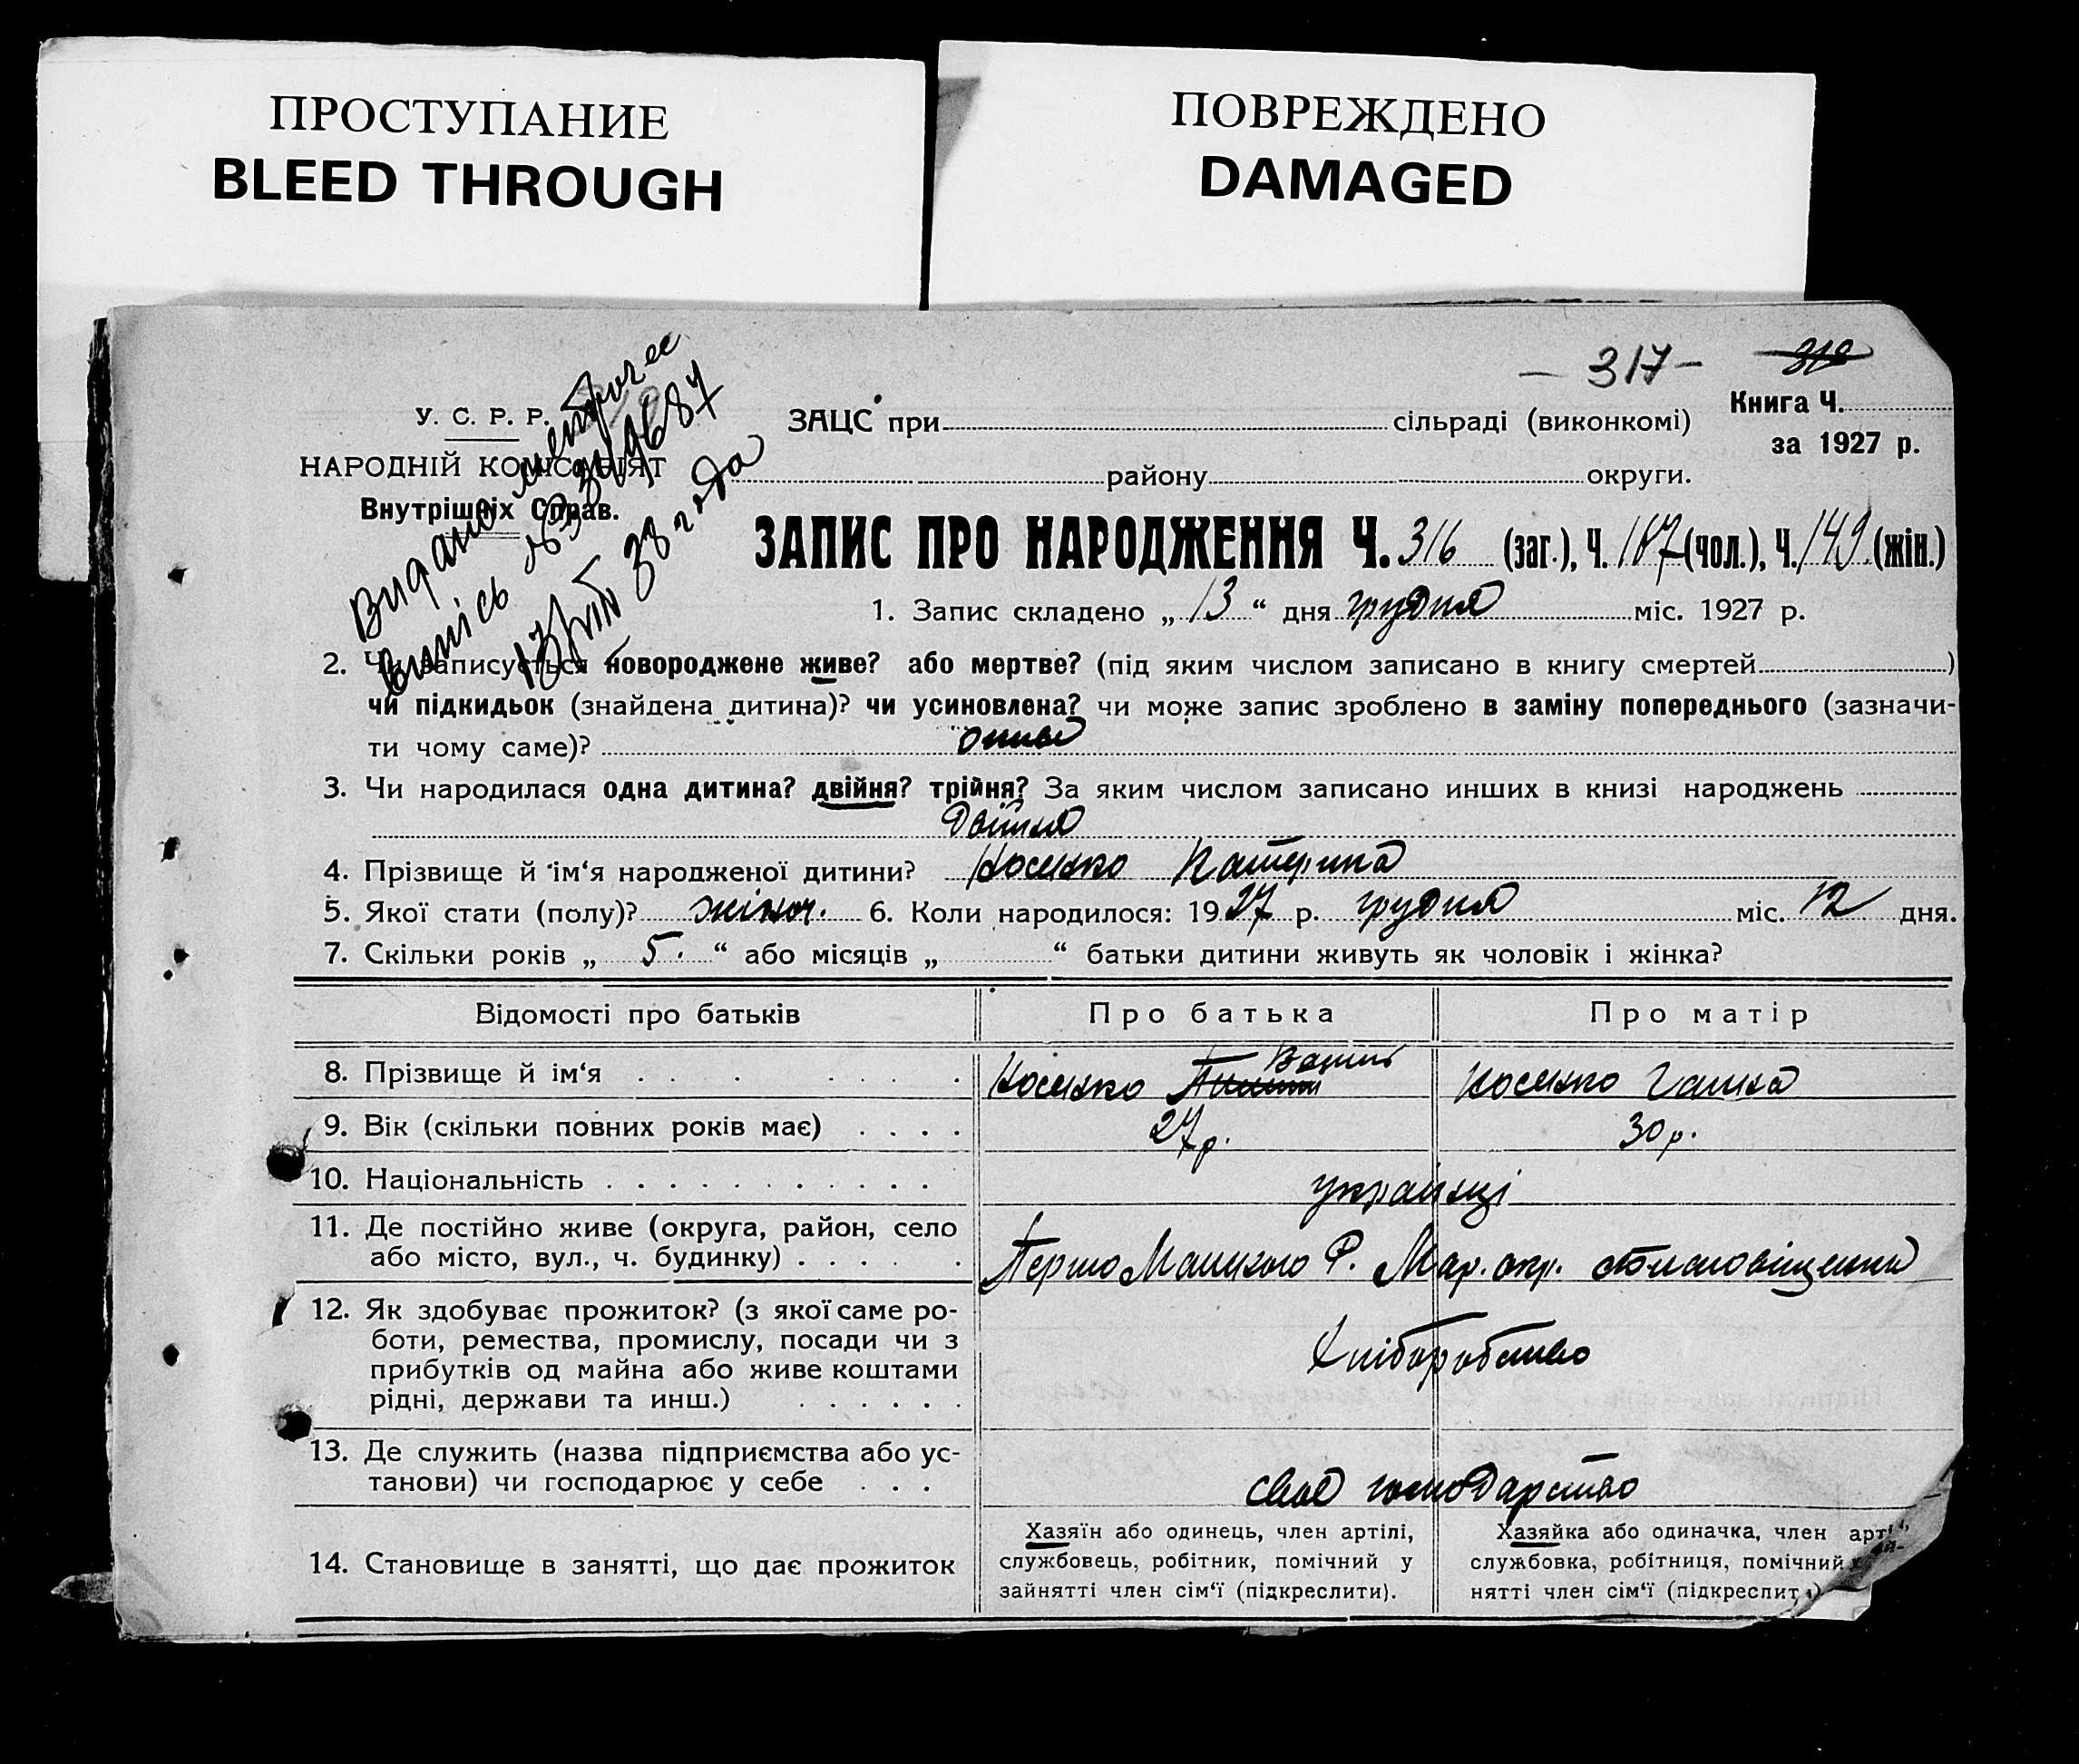 ПРОСТУПАНИЕ
BLEED THROUGH
ПОВРЕЖДЕНО
DAMAGED
— 317 —
Книга Ч.
за 1927 р.
У. С. Р. Р.
НАРОДНІЙ КОМІСАРІЯТ
Внутрішніх Справ.
Видано
випісь
38 года
ЗАЦС при сільраді (виконкомі)
району округи.
ЗАПИС ПРО НАРОДЖЕННЯ Ч. 316 (заг.), Ч. 167 (чол.), Ч. 149 (жін.)
1. Запис складено „ 13 “ дня грудня міс. 1927 р.
2. Чи записується новороджене живе? або мертве? (під яким числом записано в книгу смертей )
чи підкидьок (знайдена дитина)? чи усиновлена? чи може запис зроблено в заміну попереднього (зазначи-
ти чому саме)?
3. Чи народилася одна дитина? двійня? трійня? За яким числом записано инших в книзі народжень
Двійня
4. Прізвище й ім‘я народженої дитини? Носенко Катерина
5. Якої стати (полу)? жіноч. 6. Коли народилося: 1927 р. грудня міс. 12 дня.
7. Скільки років „ 5. “ або місяців „ “ батьки дитини живуть як чоловік і жінка?
Відомості про батьків Про батька Про матір
8. Прізвище й ім‘я Носенко Носенко Ганна
9. Вік (скільки повних років має) 27 р. 30 р.
10. Національність українці
11. Де постійно живе (округа, район, село
або місто, вул., ч. будинку) Мар. окр.
12. Як здобуває прожиток? (з якої саме ро-
боти, ремества, промислу, посади чи з
прибутків од майна або живе коштами
рідні, держави та инш.) Хліборобство
13. Де служить (назва підприємства або ус-
танови) чи господарює у себе своє господарство
14. Становище в занятті, що дає прожиток
Хазяїн або одинець, член артілі,
службовець, робітник, помічний у
зайнятті член сім‘ї (підкреслити).
Хазяйка або одиначка, член арті
службовка, робітниця, помічний
нятті член сім‘ї (підкреслит